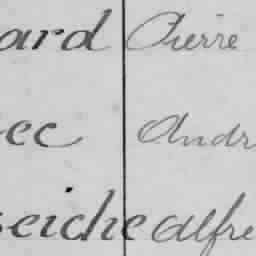 ard Pierre
ec Andr
seiche Alfre